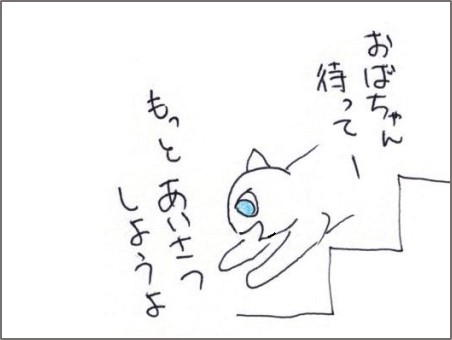 おばちゃん
待ってー
もっとあいさつ
しようよ